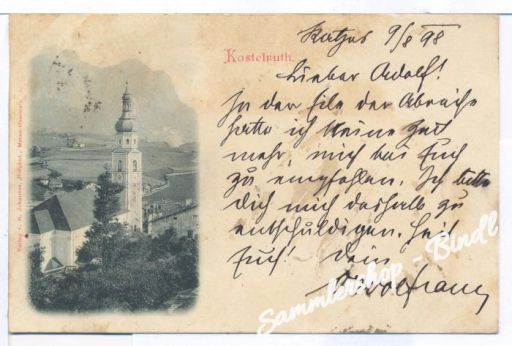 Ratzes 9/8 98
Kastelruth.
Lieber Adolf!
In der Eile der Abreise
hatte ich keine Zeit
mehr, mich bei Euch
zu empfehlen. Ich bitte
Dich mich deshalb zu
entschuldigen. Heil
Euch! Dein
Wolfram
Sammlershop - Bindl